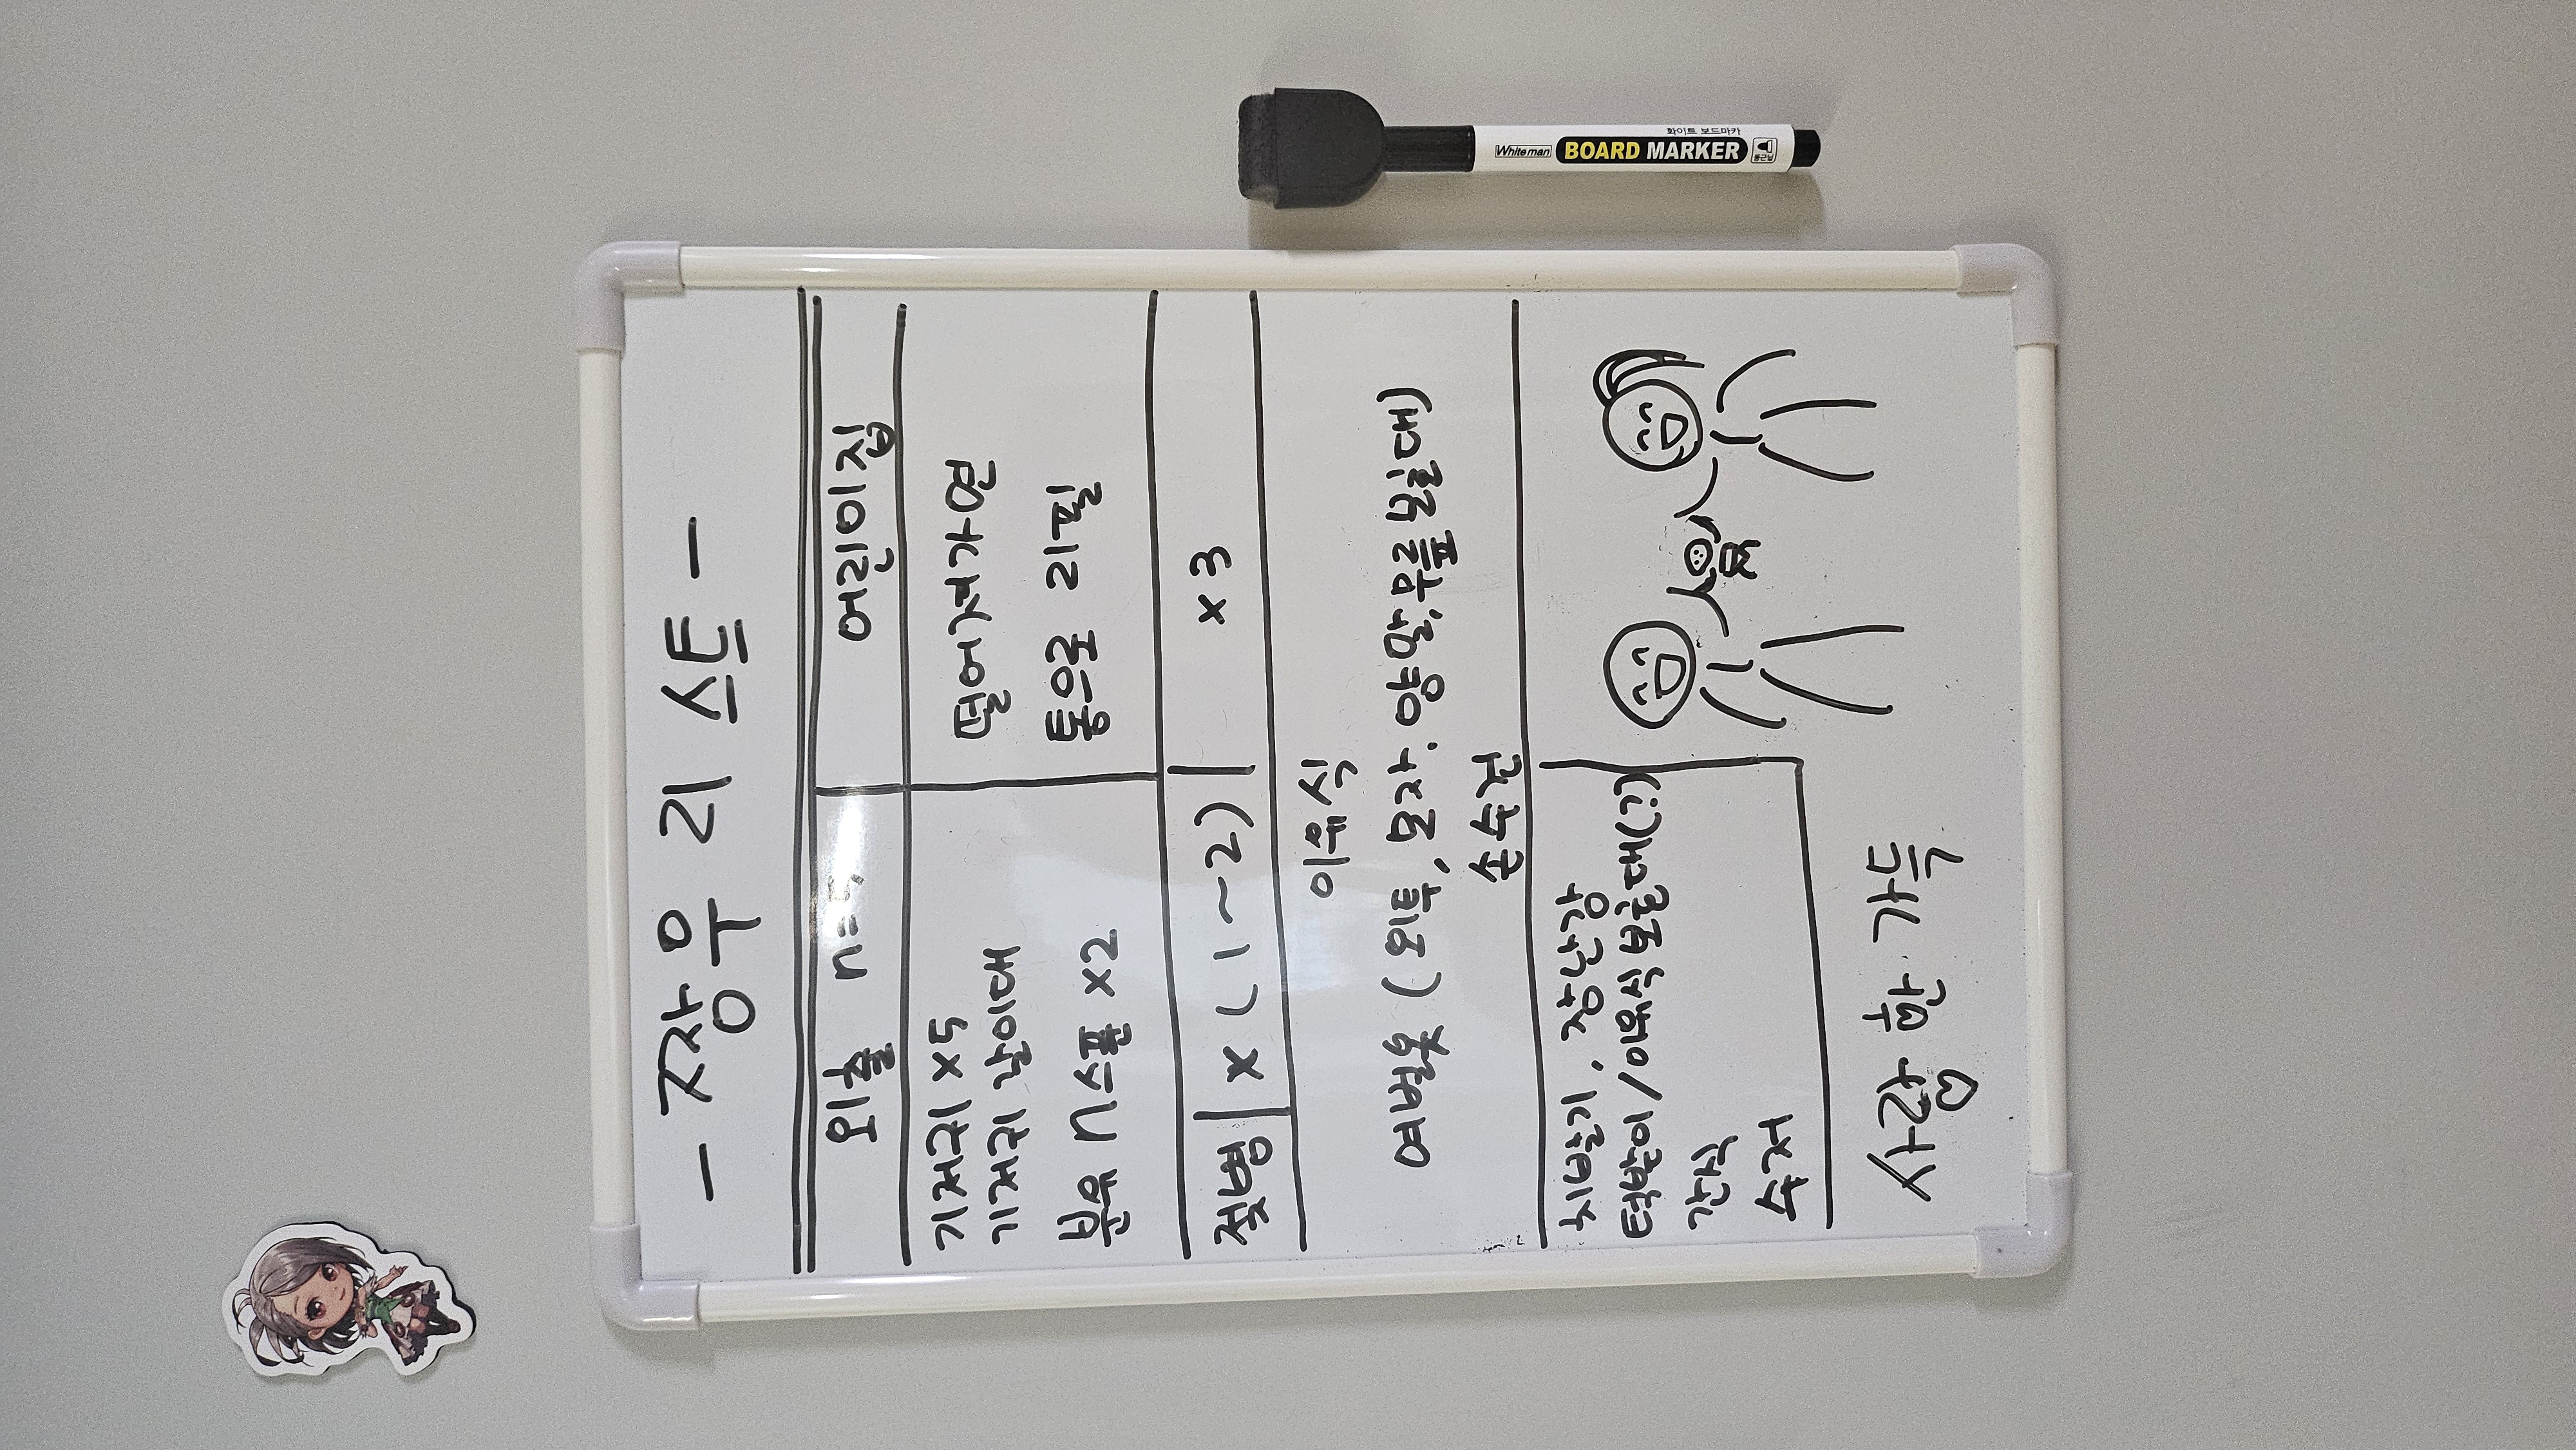 - 짱우 리스트 -
외출 n=5
어린이집
기저귀 x5
기저귀 갈이대
분유 n스푼 x2
떨어져가면
통으로 리필
젖병 x (1~2) x 3
이유식
여벌옷 (외투, 모자, 양말, 무릎보호대)
손수건
치발기, 장난감
턱받이 / 이유식 보호대(?)
간식
수저
사랑 한 가득
Whiteman
BOARD MARKER
화이트 보드마카